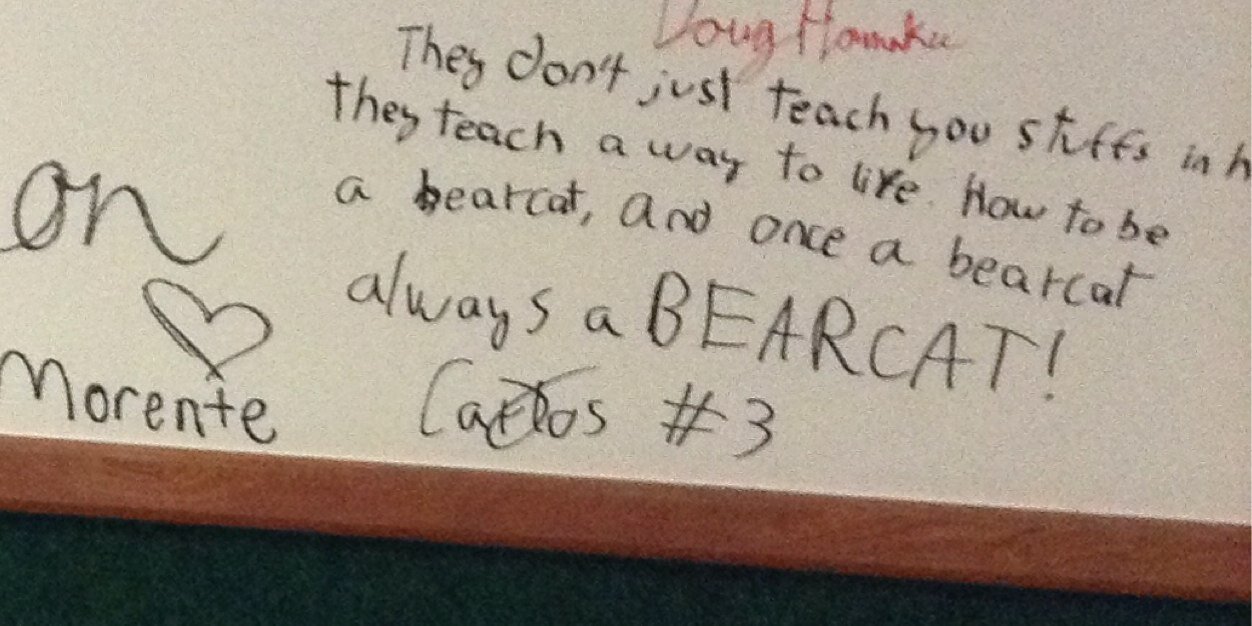 Doug
They don't just teach you stuffs in h
they teach a way to live. How to be
a bearcat, and once a bearcat
always a BEARCAT!
Carlos #3
on
Morente